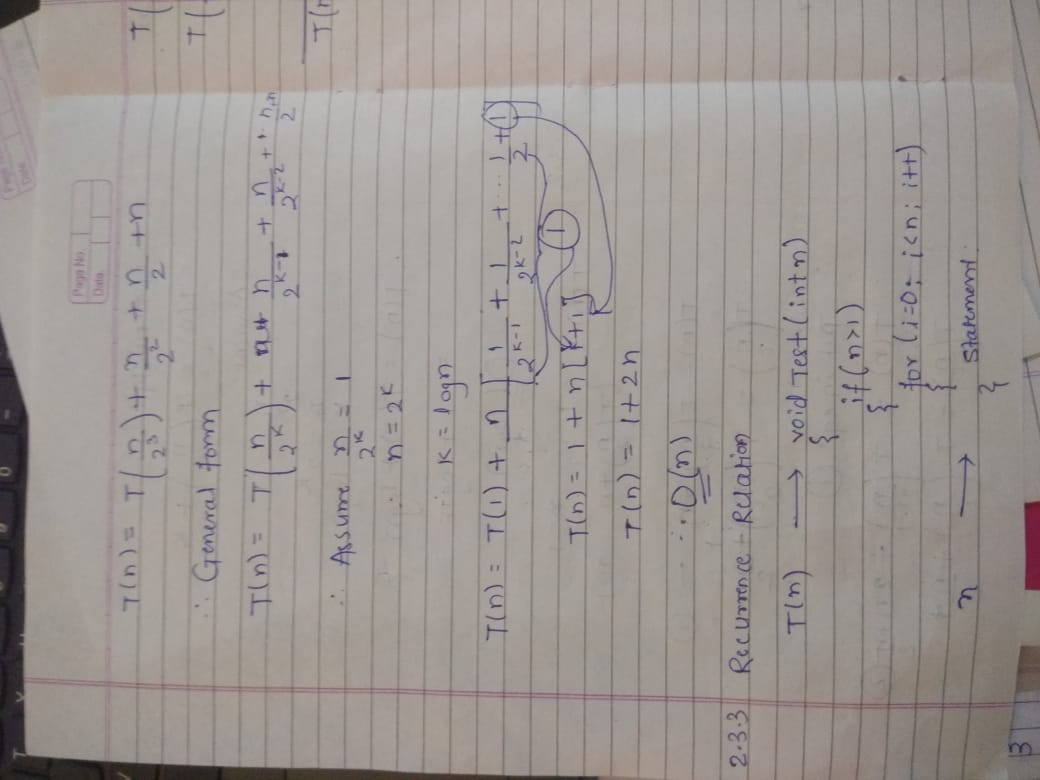 Page No.
Date
T(n) = T(n/2^3) + n/2^2 + n/2 + n
∴ General form
T(n) = T(n/2^k) + n/2^k-1 + n/2^k-2 + .. n/2 + n
∴ Assume n/2^k = 1
n = 2^k
k = logn
T(n) = T(1) + n[1/2^k-1 + 1/2^k-2 + ... 1/2 + 1]
1
T(n) = 1 + n[k+1]
T(n) = 1 + 2n
∴ O(n)
2.3.3 Recurrence - Relation
T(n) → void Test(int n)
{
if(n>1)
{
for(i=0; i<n; i++)
{
n → Statement.
}
T(
T(
T(n
Date
13